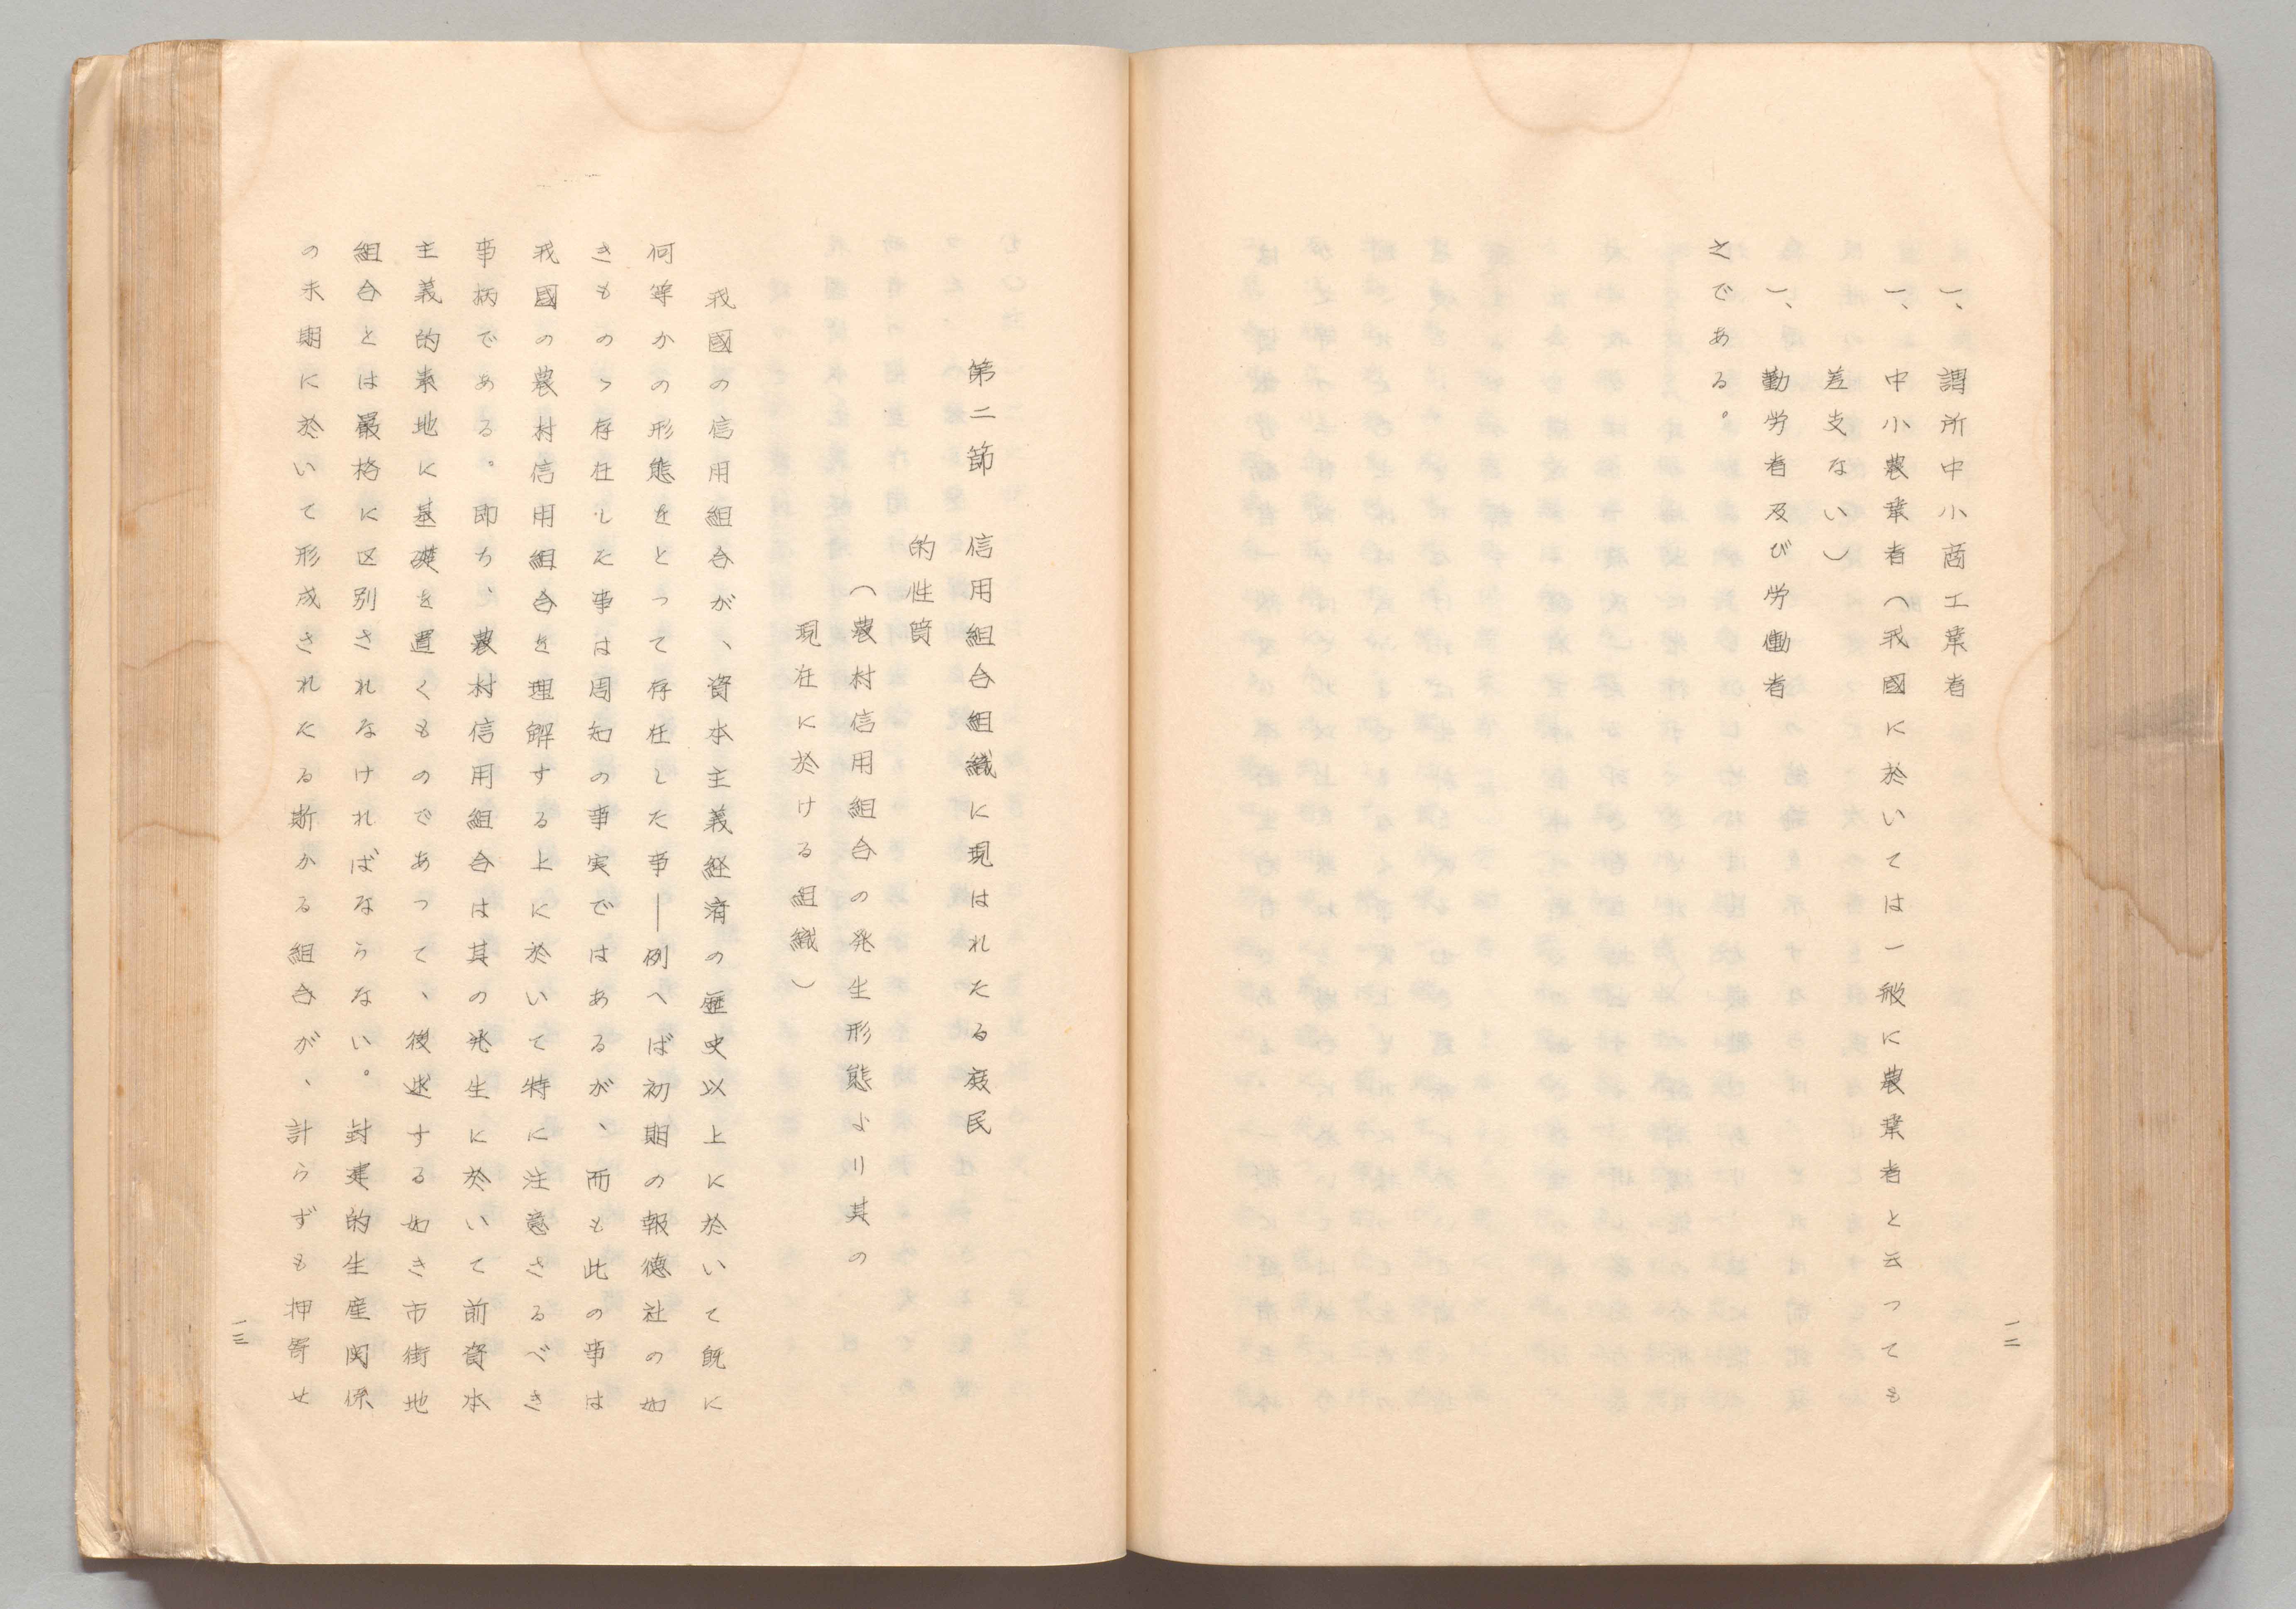 一、謂所中小商工業者
一、中小農業者（我國に於いては一般に農業者と云っても
差支ない）
一、勤労者及び労働者
之である。
一二
第二節　信用組合組織に現はれたる庶民
的性質
（農村信用組合の発生形態より其の
現在に於ける組織）
我國の信用組合が、資本主義経済の歴史以上に於いて既に
何等かの形態をとって存在した事―例へば初期の報徳社の如
きものゝ存在した事は周知の事実ではあるが、而も此の事は
我國の農村信用組合を理解する上に於いて特に注意さるべき
事柄である。即ち、農村信用組合は其の発生に於いて前資本
主義的素地に基礎を置くものであって、後述する如き市街地
組合とは嚴格に区別されなければならない。封建的生産関係
の末期に於いて形成されたる斯かる組合が、計らずも押寄せ
一三